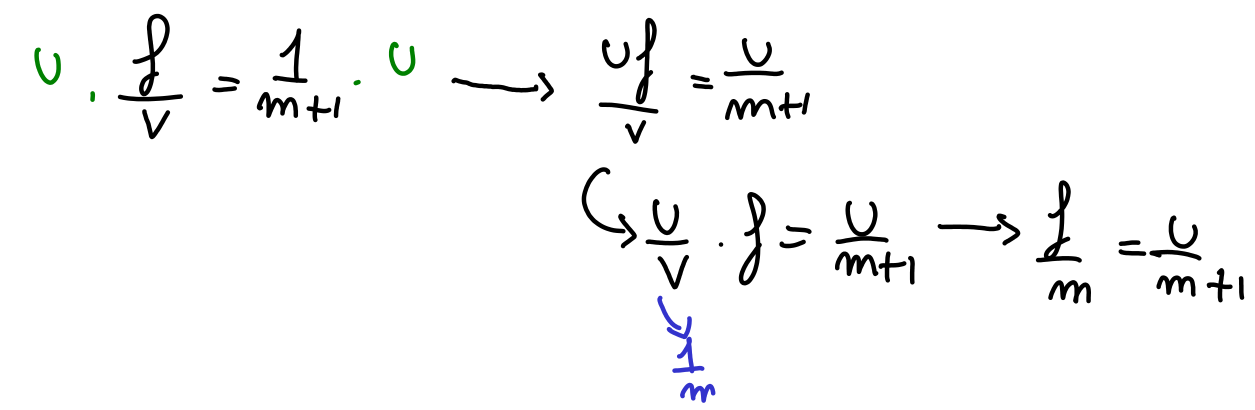 u · f/v = 1/(m+1) · u → uf/v = u/(m+1)
u/v · f = u/(m+1) → f/m = u/(m+1)
1/m